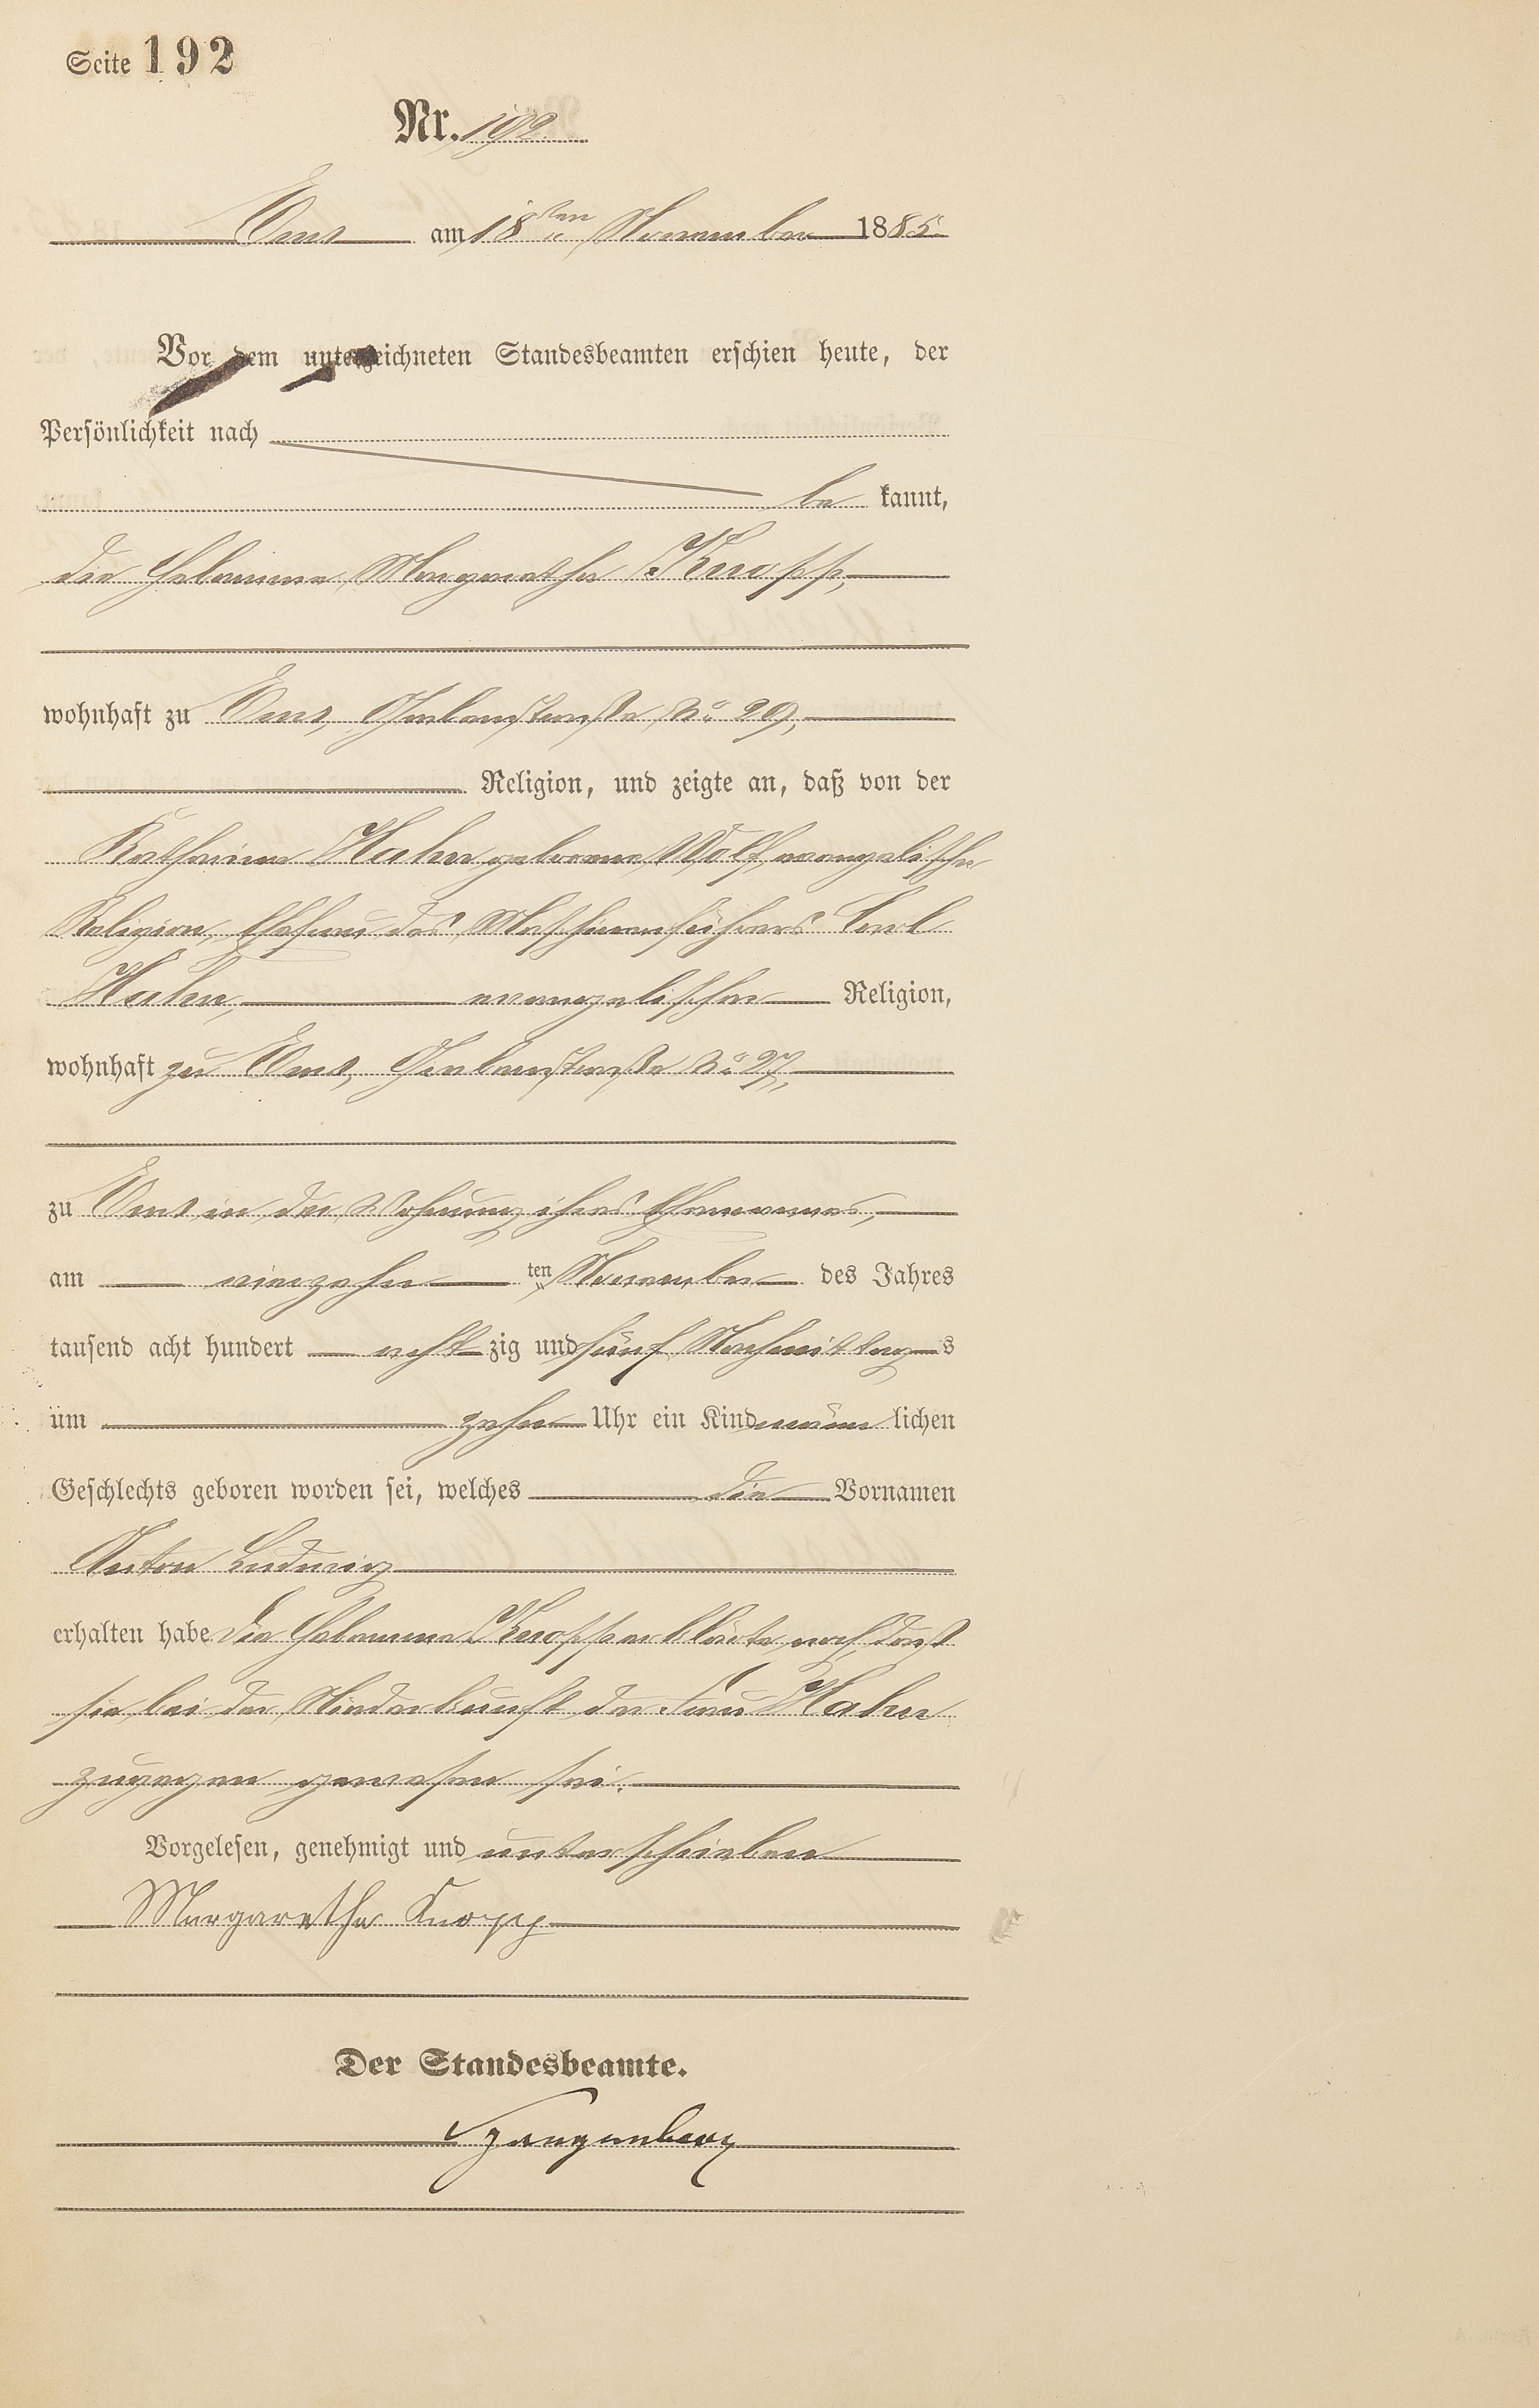 Seite 192
Nr. 192
Ems am 18ten November 1885
Vor dem unterzeichneten Standesbeamten erschien heute, der
Persönlichkeit nach
be kannt,
die Hebamme Margaretha Knopp,
wohnhaft zu Ems, No 29,
Religion, und zeigte an, daß von der
Katharina Hahn geborene Wolf, evangelischer
Religion, Ehefrau des Maschinenführers Carl
Hahn, evangelischer Religion,
wohnhaft zu Ems, No 27,
zu Ems in der Wohnung ihres Ehemannes,
am vierzehn ten November des Jahres
tausend acht hundert acht zig und fünf Nachmittag s
um zehn Uhr ein Kind männ lichen
Geschlechts geboren worden sei, welches die Vornamen
Anton Ludwig
erhalten habe Die Hebamme Knopp erklärte noch, daß
sie bei der Niederkunft der Frau Hahn
zugegen gewesen sei.
Vorgelesen, genehmigt und unterschrieben
Margaretha Knopp
Der Standesbeamte.
Spangenberg